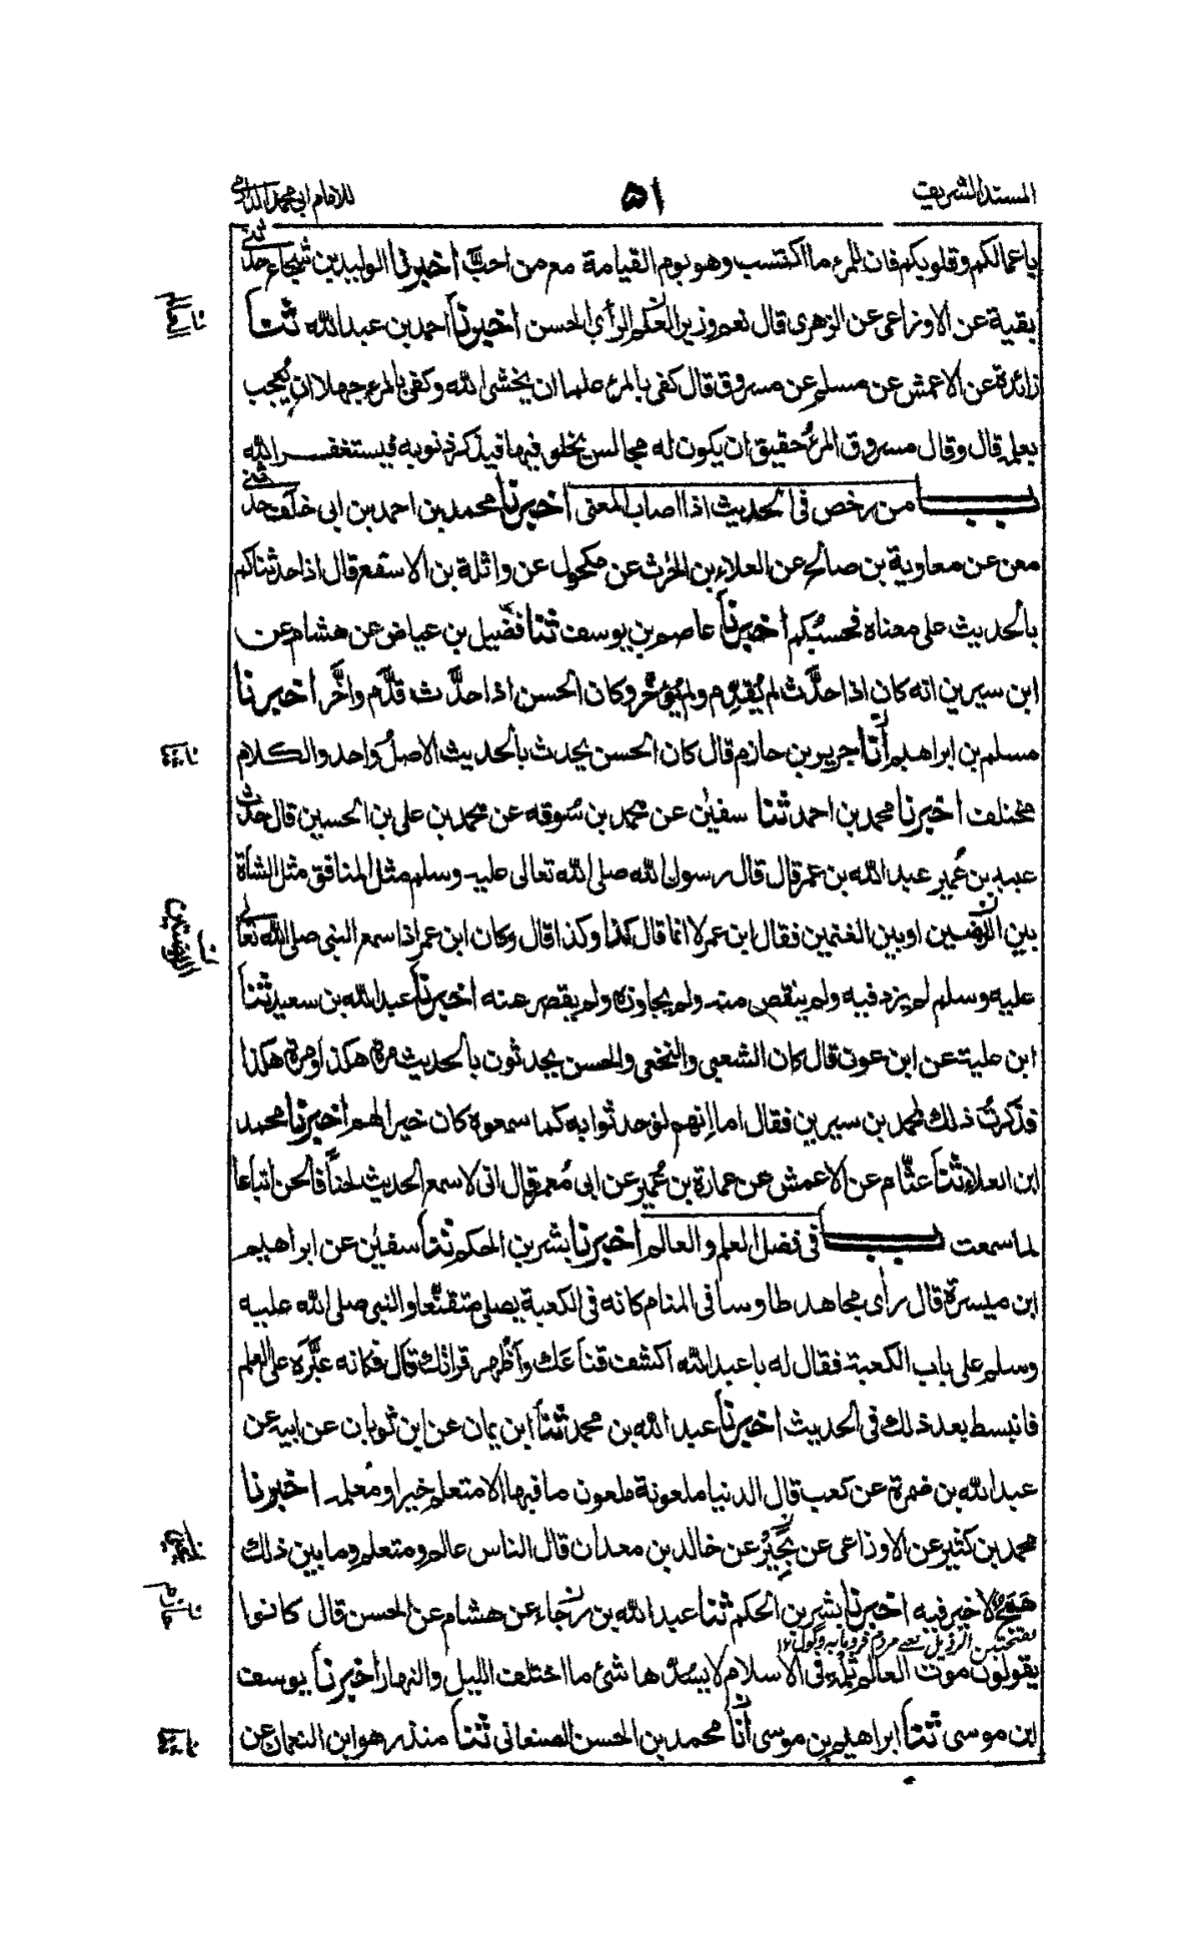 المسند الشريف ۵۱ للامام ابی محمد الدارمی
باعمالكم وقلوبكم فان للمرء ما اكتسب وهو يوم القيامة مع من احبَّ اخبرنا الوليد بن شجاع حدثنی
بقية عن الاوزاعی عن الزهری قال نعم وزير العلم الرأی الحسن اخبرنا احمد بن عبد الله ثنا
زائدة عن الاعمش عن مسلم عن مسروق قال كفی بالمرء علما ان يخشی الله وكفی بالمرء جهلا ان يُعجب
بعلمه قال وقال مسروق المرءُ حقيق ان يكون له مجالس يخلو فيها فيذكر ذنوبه فيستغفر الله
باب من رخص فی الحديث اذا اصاب المعنی اخبرنا محمد بن احمد بن ابی خلف حدثنی
معن عن معاوية بن صالح عن العلاء بن الحرث عن مكحول عن واثلة بن الاسقع قال اذا حدثناكم
بالحديث علی معناه فحسبُكم اخبرنا عاصم بن يوسف ثنا فضيل بن عياض عن هشام عن
ابن سيرين انه كان اذا حدَّث لم يُقدِّم ولم يُؤخِّر وكان الحسن اذا حدَّث قدَّم واخَّر اخبرنا
مسلم بن ابراهيم أنا جرير بن حازم قال كان الحسن يحدث بالحديث الاصلُ واحد والكلام
مختلف اخبرنا محمد بن احمد ثنا سفيٰن عن محمد بن سُوقه عن محمد بن علی بن الحسين قال حدث
عبيد بن عُمير عبد الله بن عمر قال قال رسول الله صلی الله تعالی عليه وسلم مثل المنافق مثل الشاة
بين الرَّبضين او بين الغنمين فقال ابن عمر لا انما قال كذا وكذا قال وكان ابن عمر اذا سمع النبی صلی الله تعالی
عليه وسلم لم يزد فيه ولم ينقص منه ولم يجاوزه ولم يقصر عنه اخبرنا عبد الله بن سعيد ثنا
ابن علية عن ابن عون قال كان الشعبی والنخعی والحسن يحدثون بالحديث مرة هكذا ومرة هكذا
فذكرتُ ذلك لمحمد بن سيرين فقال اما إنهم لو حدثوا به كما سمعوه كان خيرا لهم اخبرنا محمد
ابن العلاء ثنا عثَّام عن الاعمش عن عمارة بن عُمير عن ابی مُعمر قال انی لاسمع الحديث لحناً فالحن اتباعا
لما سمعت باب فی فضل العلم والعالم اخبرنا بشر بن الحكم ثنا سفيٰن عن ابراهيم
ابن ميسرة قال رأی مجاهد طاوسا فی المنام كانه فی الكعبة يصلی متقنّعا والنبی صلی الله عليه
وسلم علی باب الكعبة فقال له يا عبد الله اكشف قناعك وأظهر قراتك قال فكانه عبَّره علی العلم
فانبسط بعد ذلك فی الحديث اخبرنا عبد الله بن محمد ثنا ابن يمان عن ابن ثوبان عن ابيه عن
عبد الله بن ضمرة عن كعب قال الدنيا ملعونة ملعون ما فيها الا متعلم خير او مُعلمه اخبرنا
محمد بن كثير عن الاوزاعی عن بَحِيْرٍ عن خالد بن معدان قال الناس عالم ومتعلم وما بين ذلك
هَمَجٌ لا خير فيه اخبرنا بشر بن الحكم ثنا عبد الله بن رجاء عن هشام عن الحسن قال كانوا
بفتحتين الرذيل يعنی مردم فرومايه وگول ۱۲
يقولون موت العالم ثلمة فی الاسلام لا يسدُّها شئ ما اختلف الليل والنهار اخبرنا يوسف
ابن موسی ثنا ابراهيم بن موسی أنا محمد بن الحسن الصنعانی ثنا منذر هو ابن النعمان عن